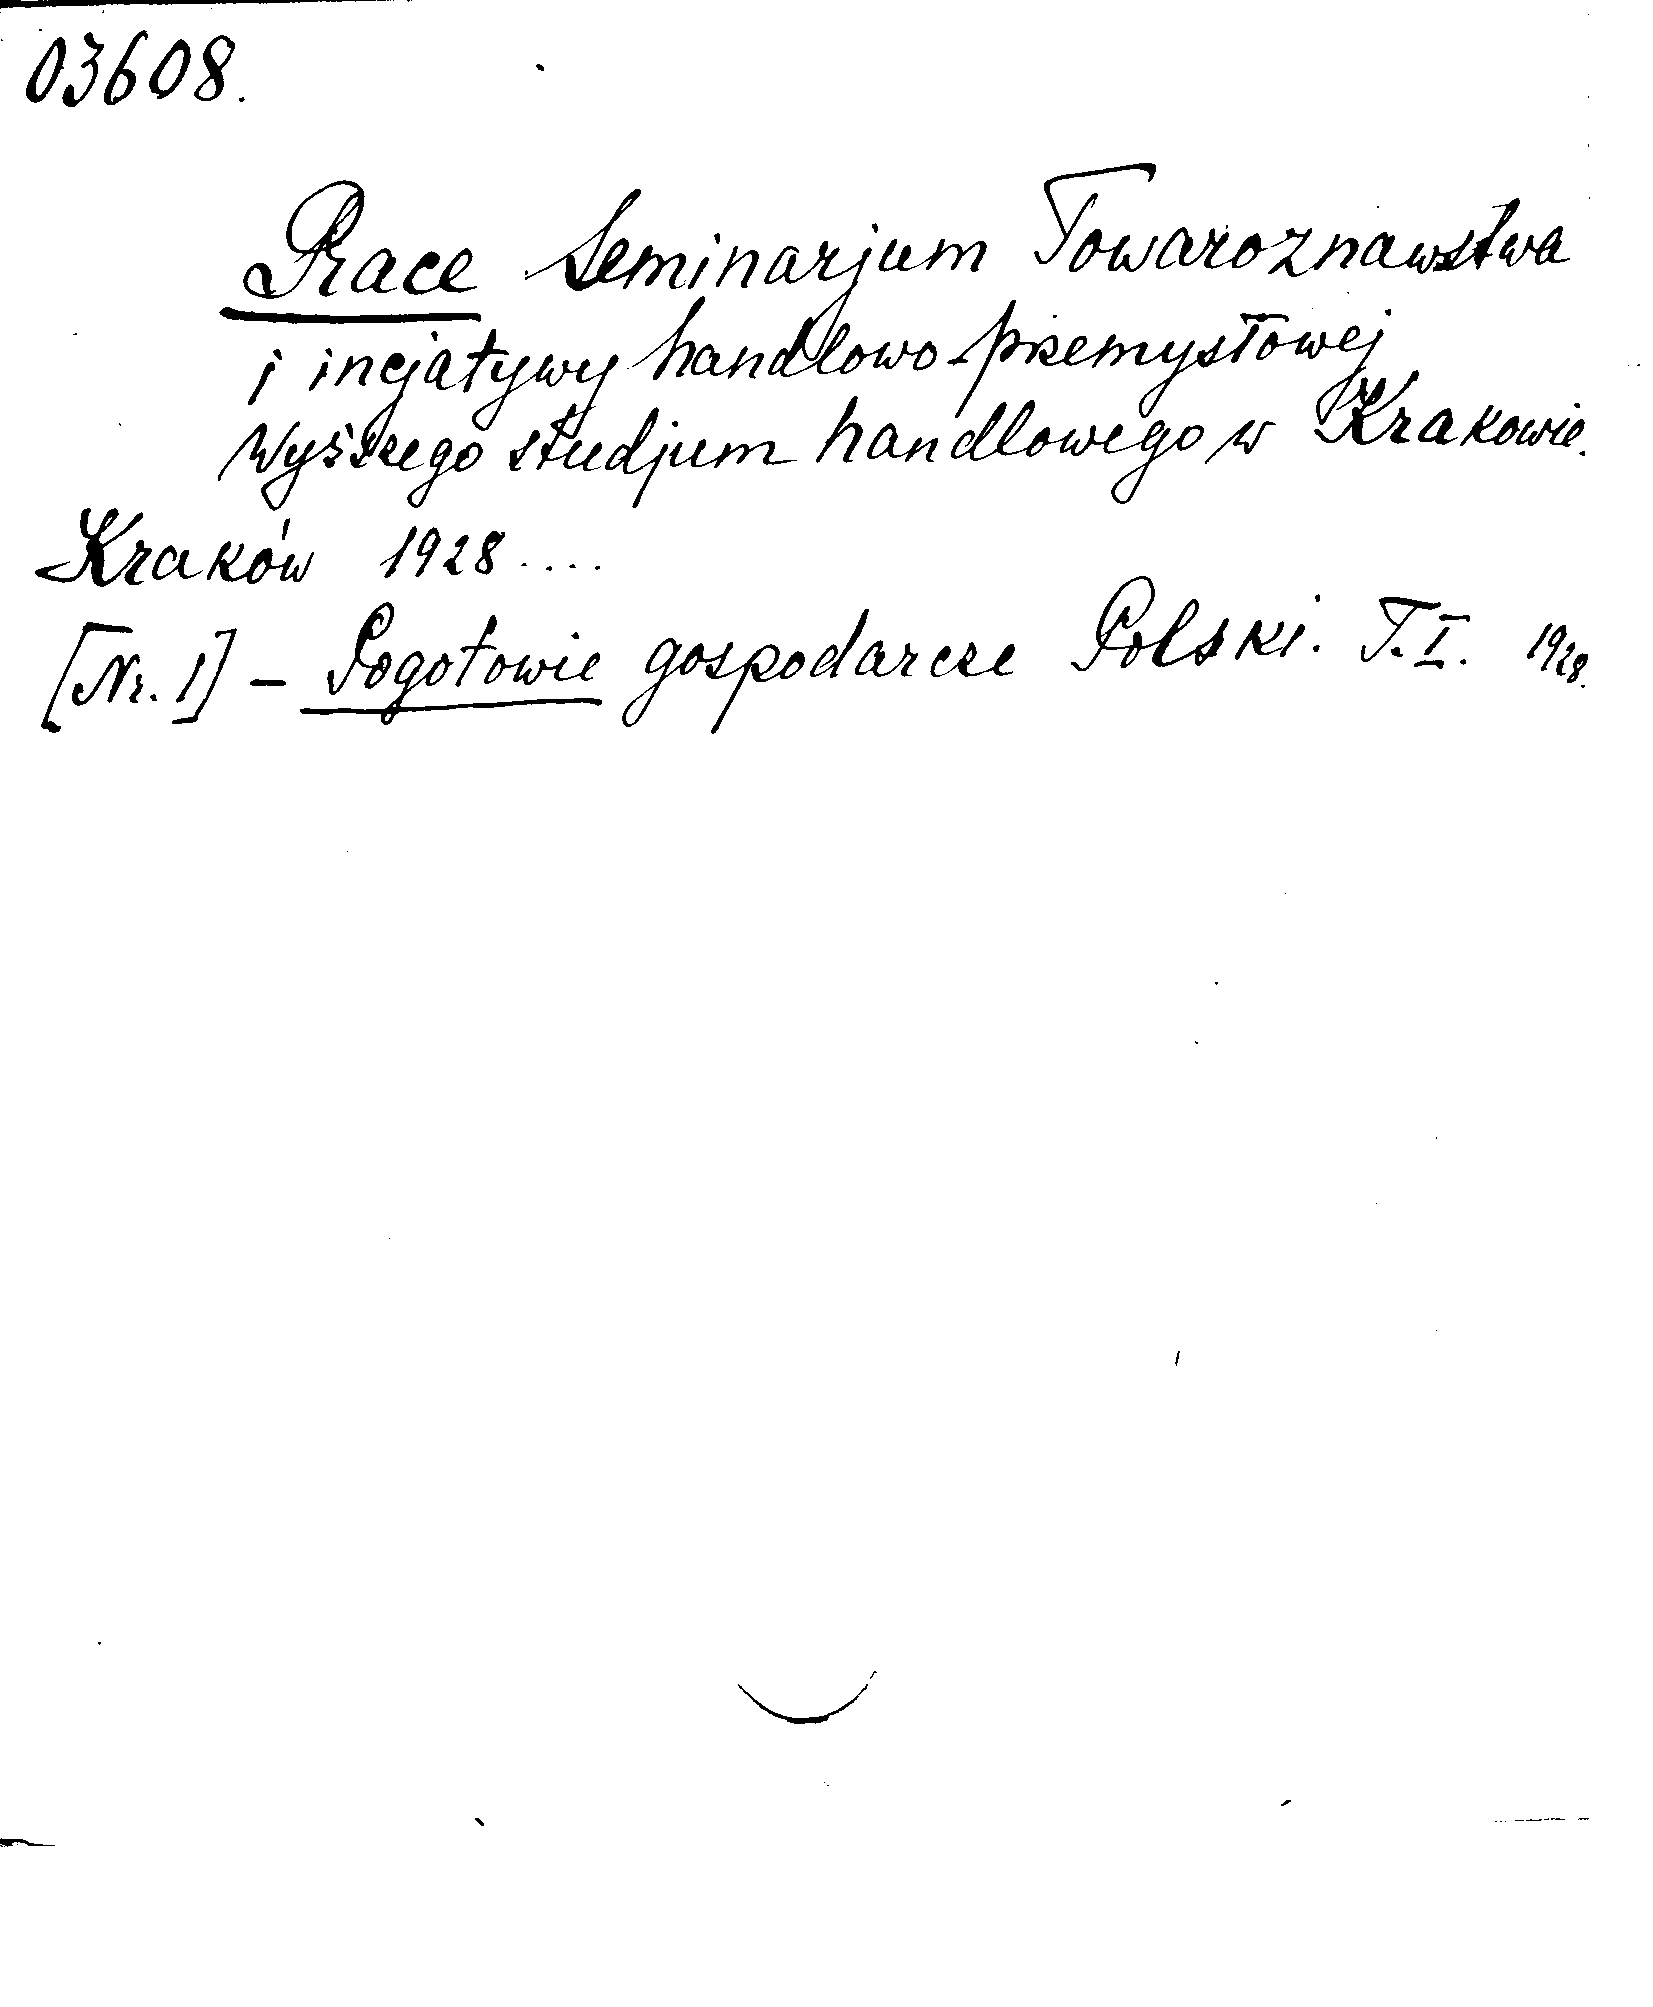 03608.
Prace Seminarjum Towaroznawstwa
i incjatywy handlowo-przemysłowej
Wyższego studjum handlowego w Krakowie.
Kraków 1928....
[Nr. 1] - Pogotowie gospodarcze Polski. T. I. 1928.